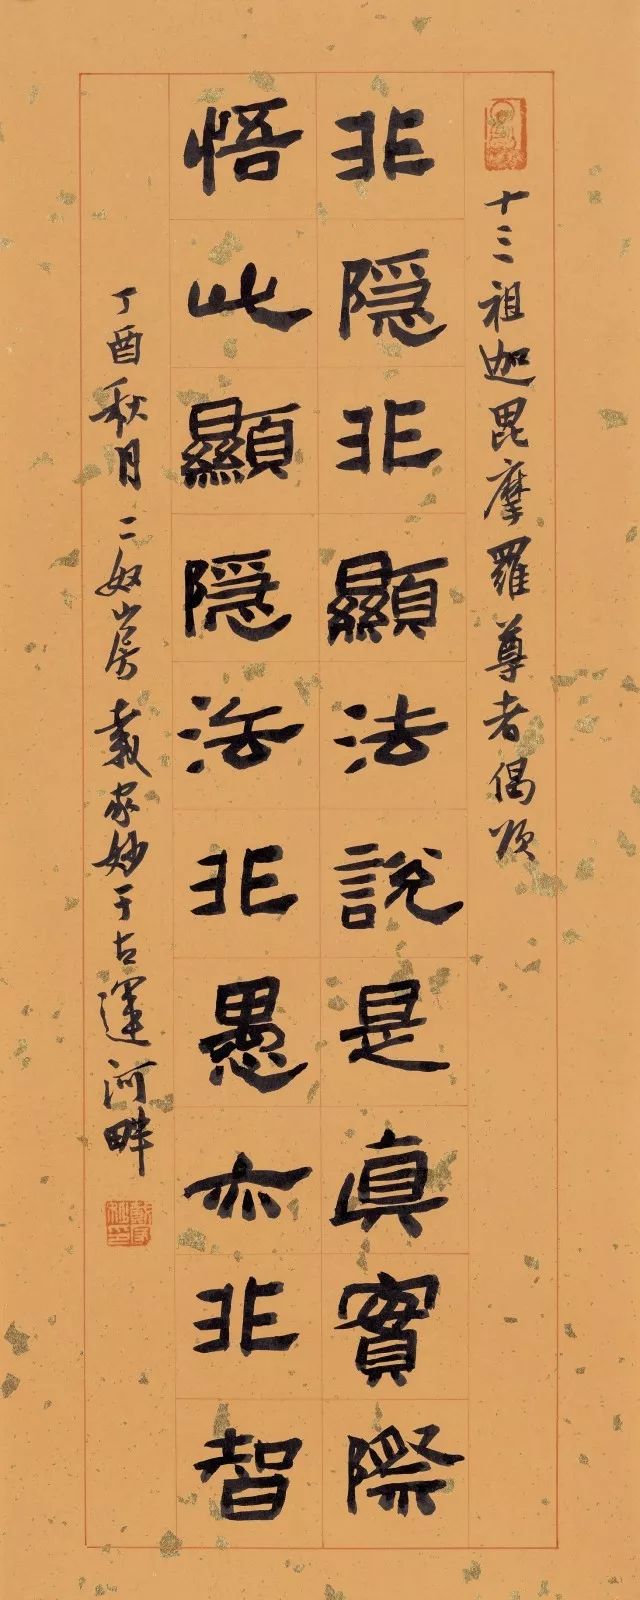 十三祖迦毘摩羅尊者偈頌
非隱非顯法說是真實際
悟此顯隱法非愚亦非智
丁酉秋月二奴山房戴家妙于古運河畔